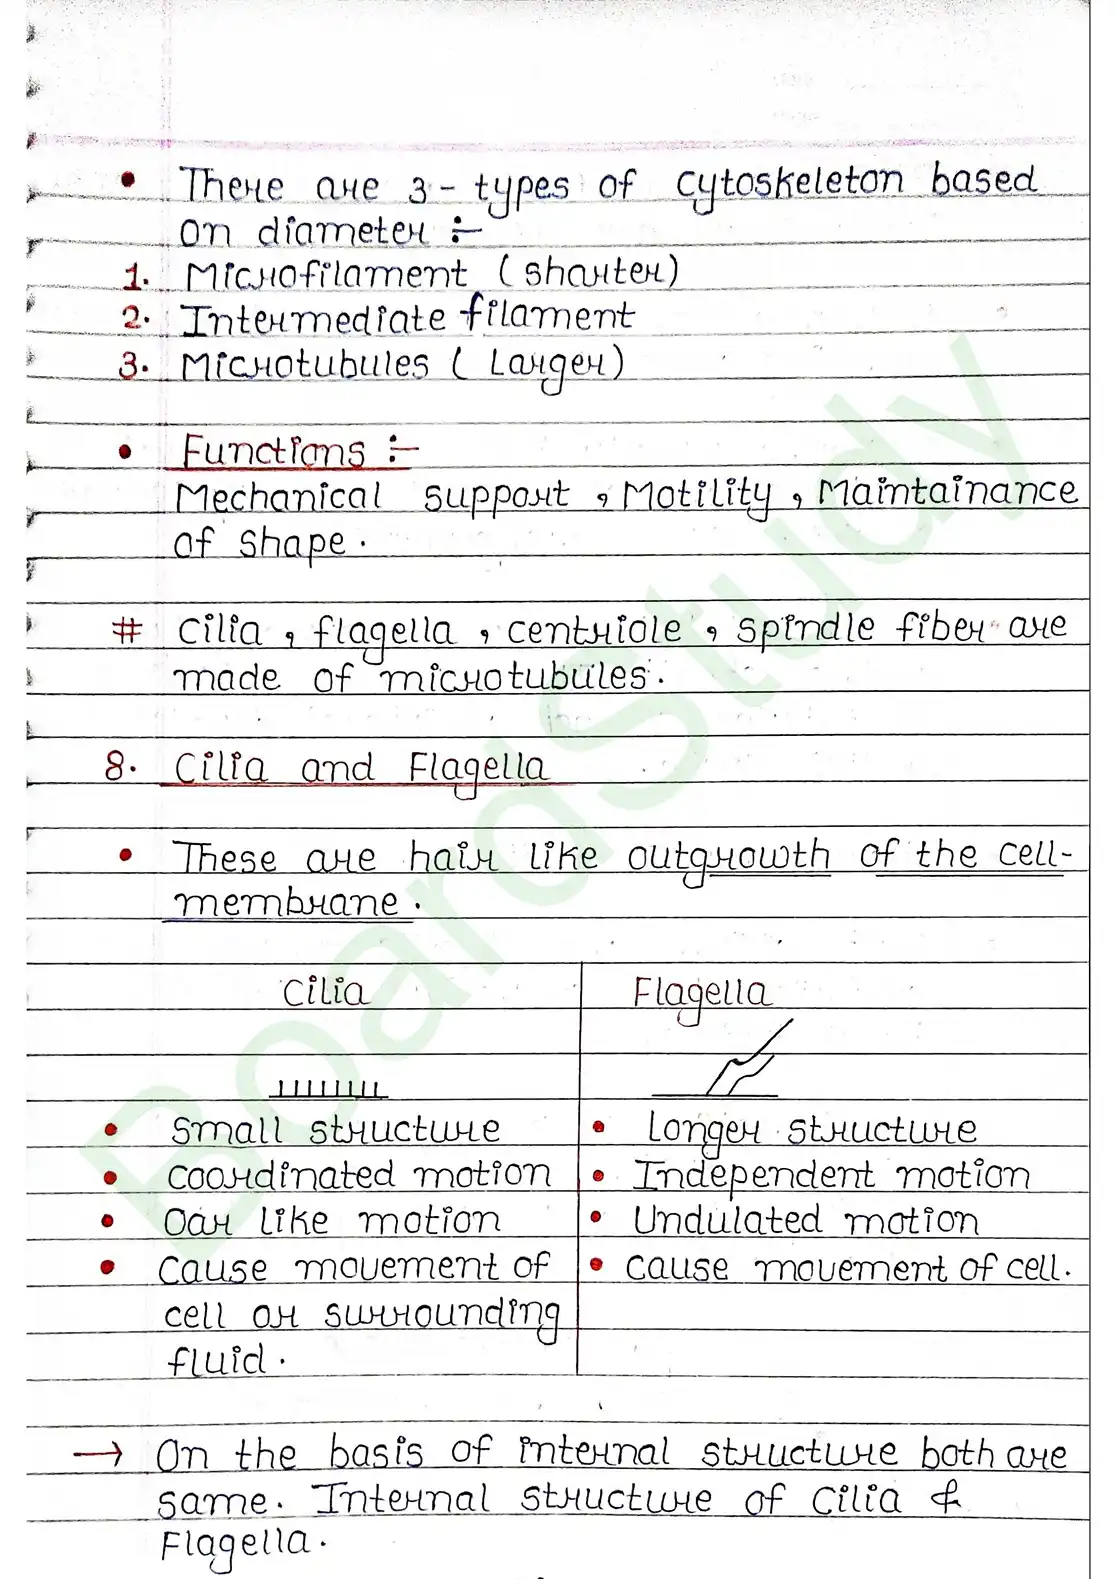 • There are 3 - types of cytoskeleton based
on diameter :-
1. Microfilament ( shorter)
2. Intermediate filament
3. Microtubules ( Larger)
• Functions :-
Mechanical support , Motility , Maintainance
of shape .
# cilia , flagella , centriole , spindle fiber are
made of microtubules .
8. Cilia and Flagella
• These are hair like outgrowth of the cell-
membrane .
Cilia Flagella
• Small structure • Longer structure
• coordinated motion • Independent motion
• Oar like motion • Undulated motion
• Cause movement of • cause movement of cell.
cell or surrounding
fluid .
→ On the basis of internal structure both are
same . Internal structure of Cilia &
Flagella .
BoardStudy